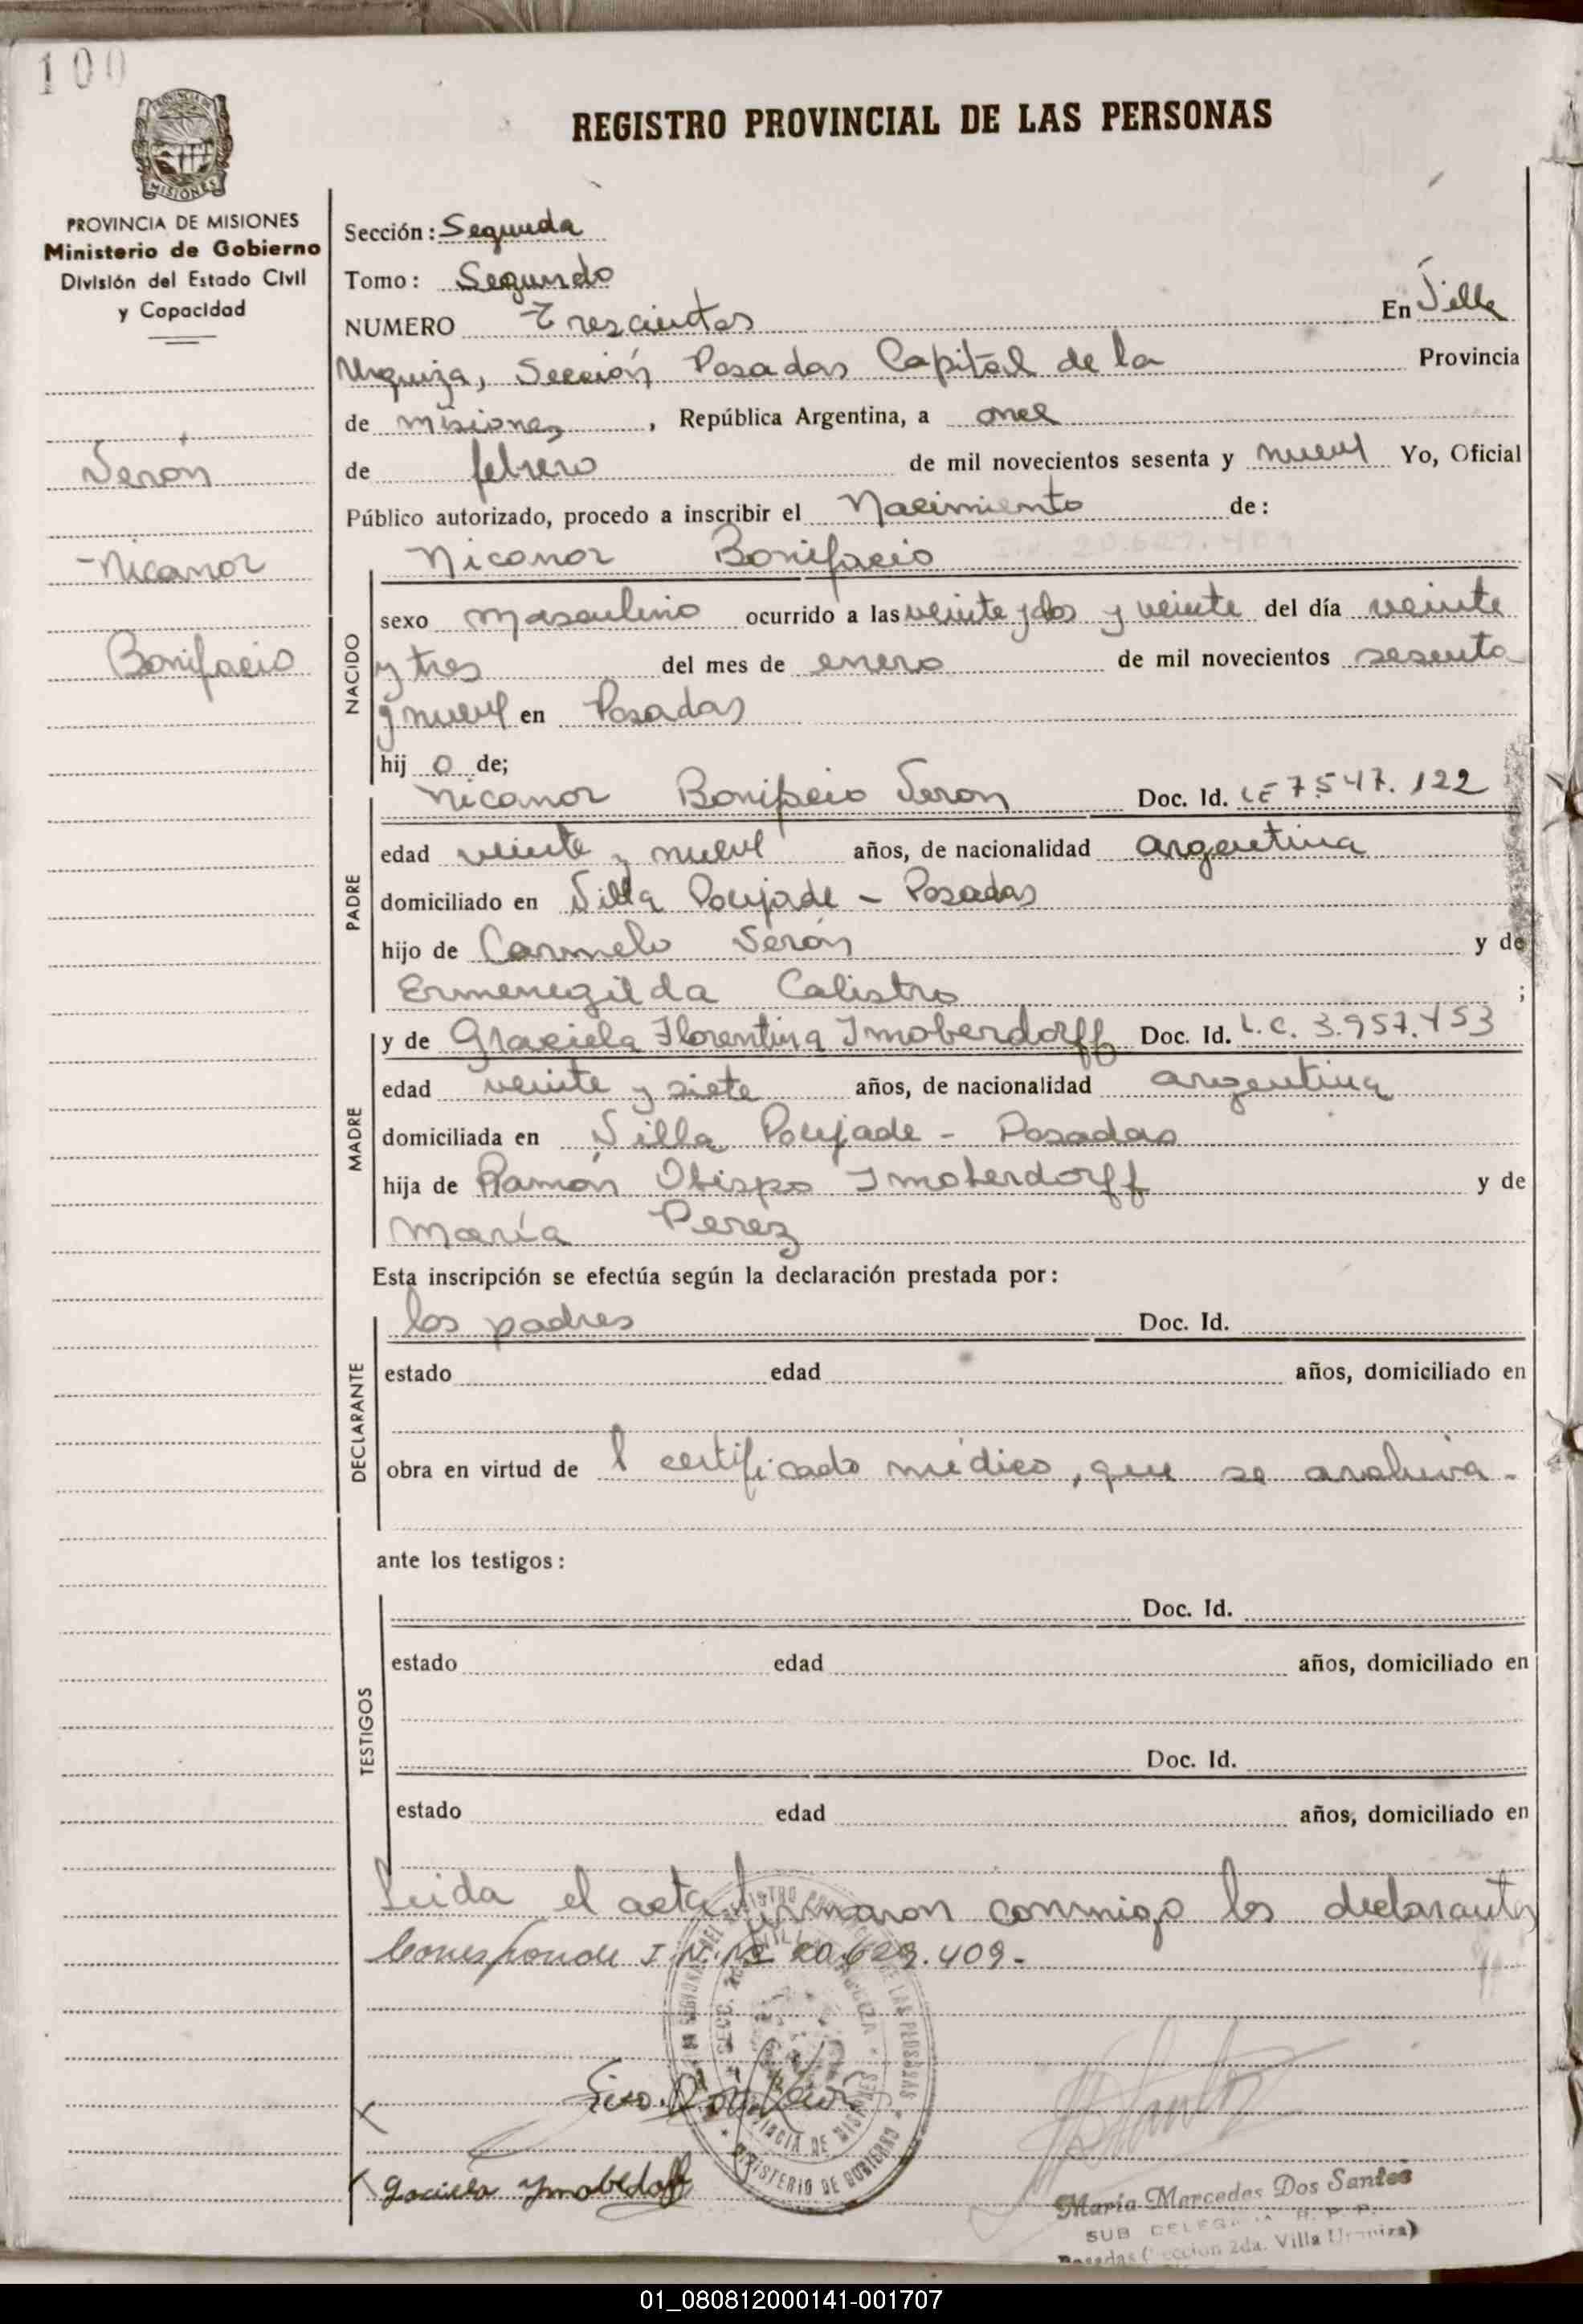 100
REGISTRO PROVINCIAL DE LAS PERSONAS
MISIONES
PROVINCIA DE MISIONES
Ministerio de Gobierno
División del Estado Civil
y Capacidad
Veron
Nicanor
Bonifacio
Sección: Segunda
Tomo: Segundo
NUMERO Trescientos En Villa
Urquiza, Sección Posadas Capital de la Provincia
de misiones, República Argentina, a once
de febrero de mil novecientos sesenta y nueve Yo, Oficial
Público autorizado, procedo a inscribir el Nacimiento de:
Nicanor Bonifacio
NACIDO
sexo masculino ocurrido a las veinte y dos y veinte del día veinte
y tres del mes de enero de mil novecientos sesenta
y nueve en Posadas
hij o de;
PADRE
Nicanor Bonifacio Veron Doc. Id. LE 7.547.122
edad veinte y nueve años, de nacionalidad argentina
domiciliado en Villa Poujade - Posadas
hijo de Carmelo Verón y de
Ermenegilda Calistro ;
MADRE
y de Graciela Florentina Imoberdorff Doc. Id. L.C. 3.957.453
edad veinte y siete años, de nacionalidad argentina
domiciliada en Villa Poujade - Posadas
hija de Ramón Obispo Imoberdorff y de
María Perez
Esta inscripción se efectúa según la declaración prestada por:
DECLARANTE
los padres Doc. Id.
estado edad años, domiciliado en
obra en virtud de l certificado médico, que se archiva.
ante los testigos:
TESTIGOS
Doc. Id.
estado edad años, domiciliado en
Doc. Id.
estado edad años, domiciliado en
Leida el acta firmaron conmigo los declarantes
Corresponde I.N. Nº 20.629.409-
MINISTERIO DE GOBIERNO
María Mercedes Dos Santos
SUB DELEGADA R. P. P.
Posadas (Sección 2da. Villa Urquiza)
01_080812000141-001707